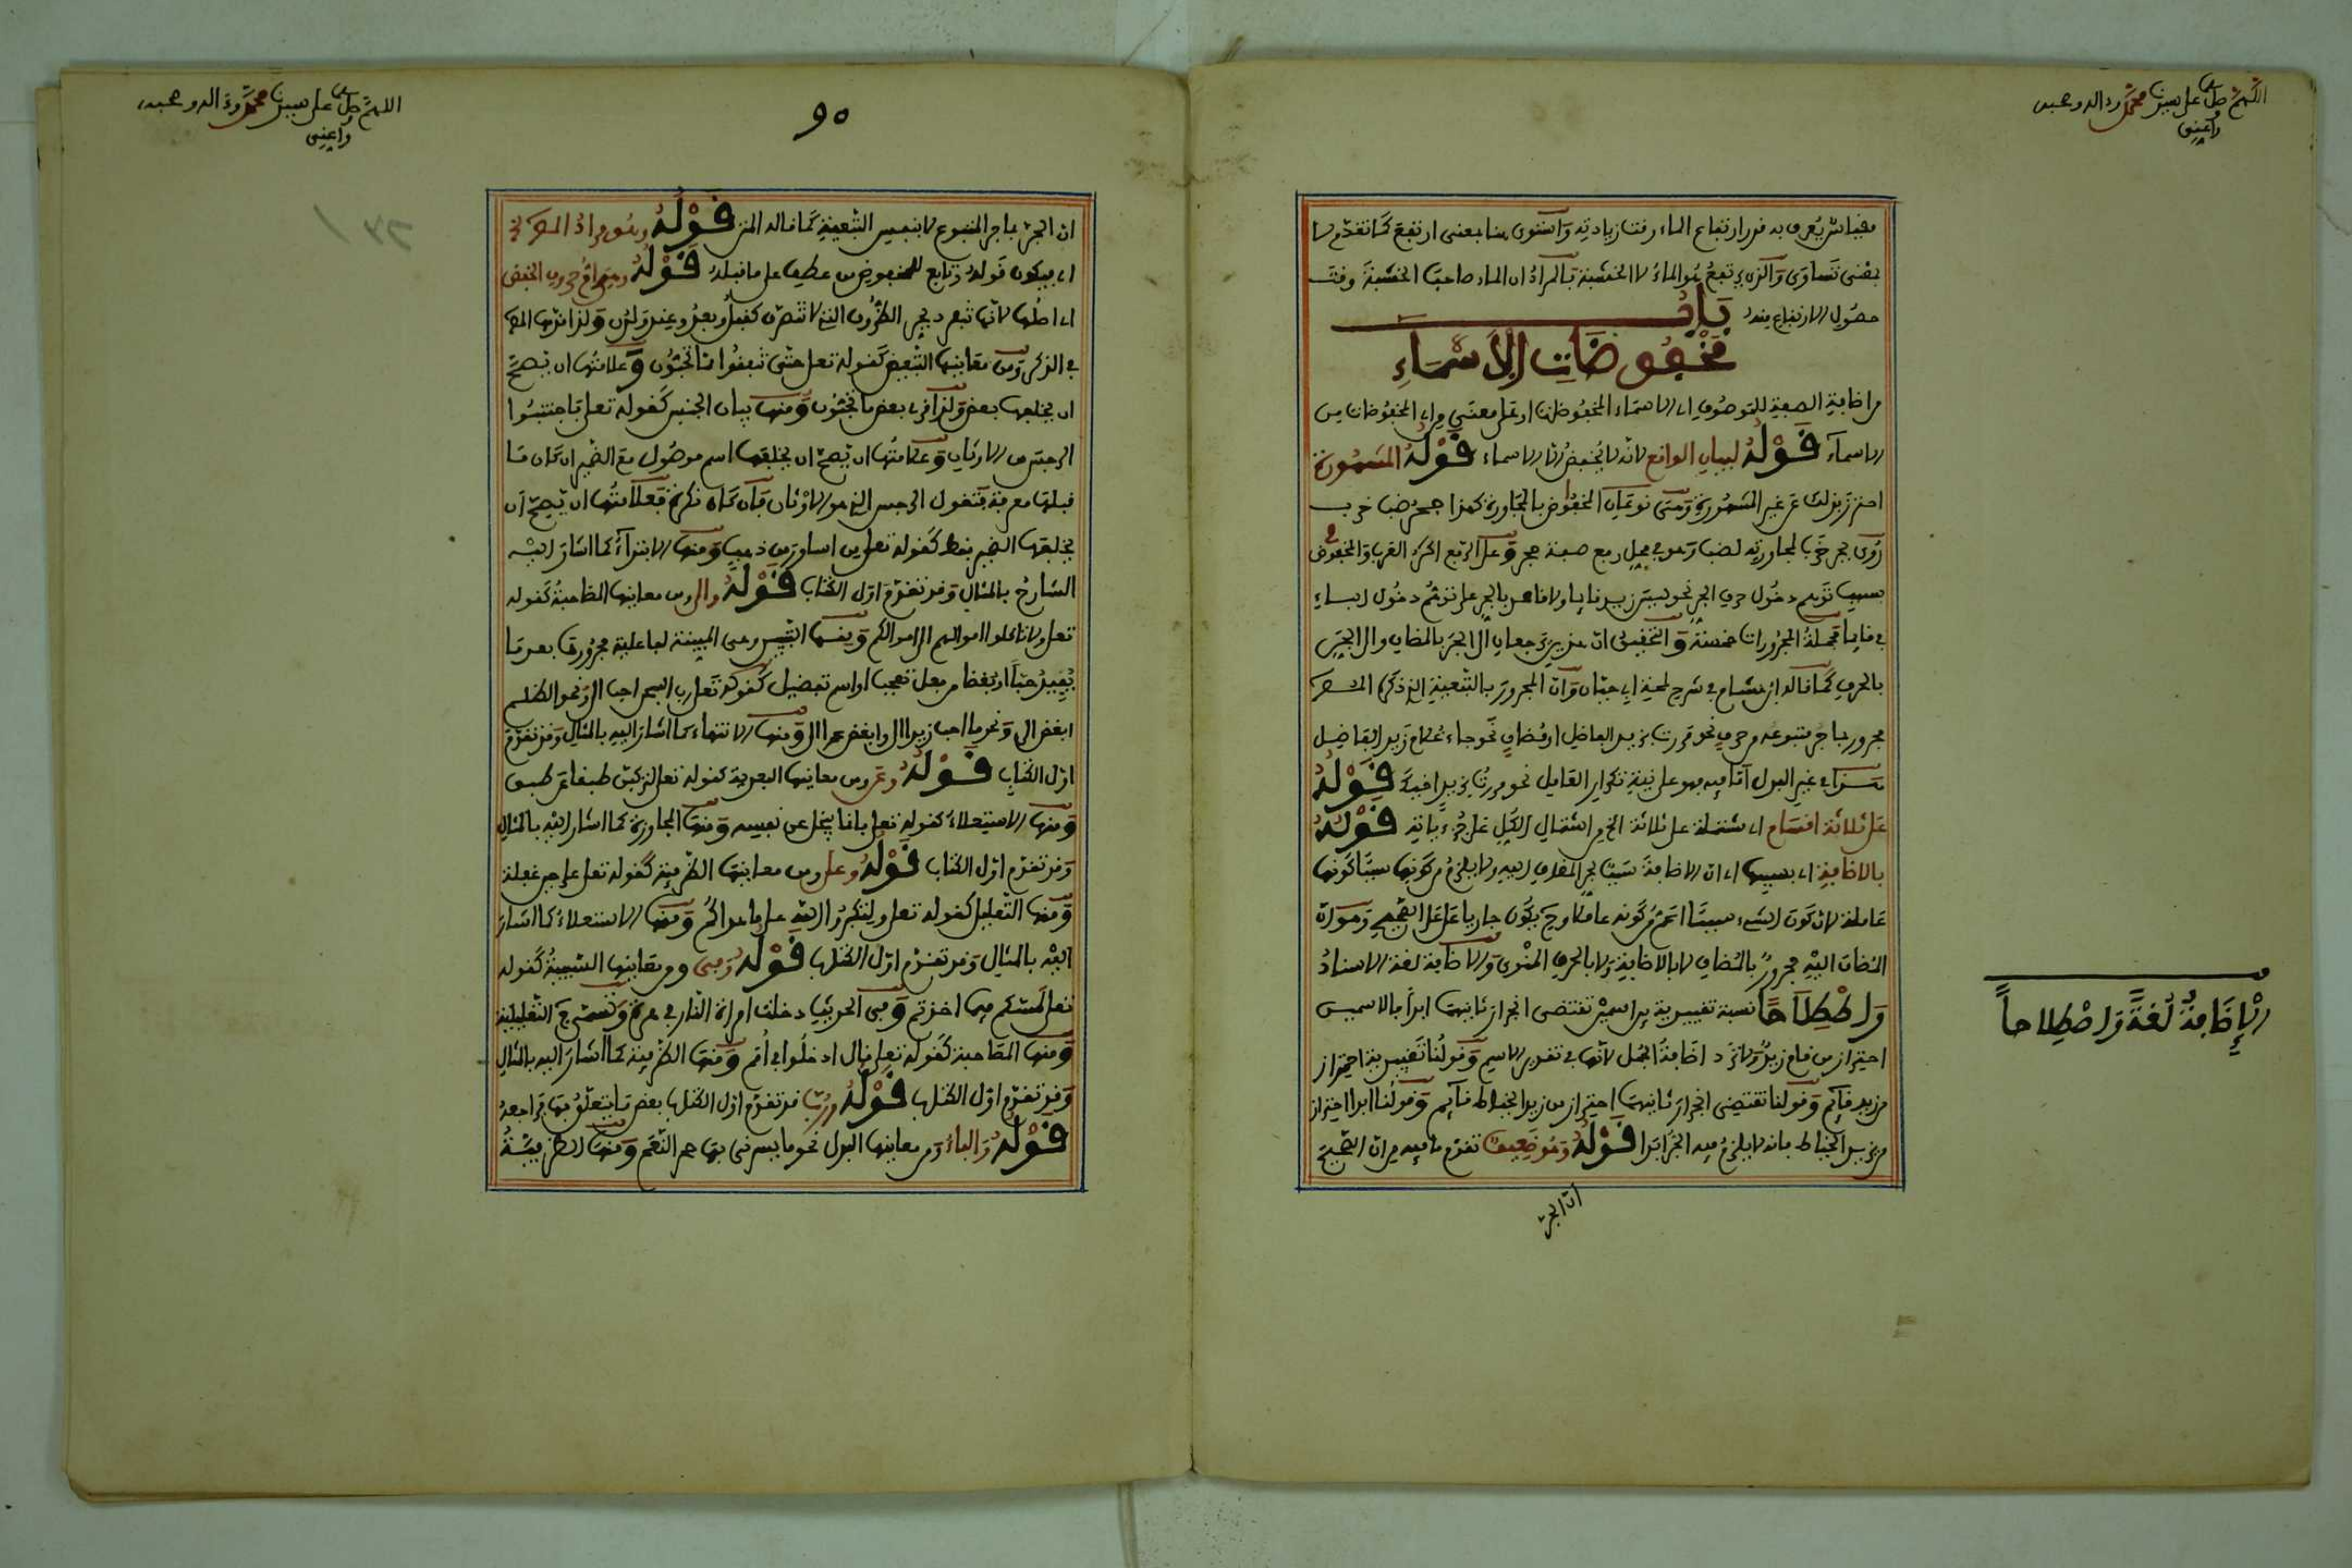 اللهم صل على سيدنا محمد وءاله وصحبه
وأعني
مقياس يعرف به قدر ارتفاع الماء وقت زيادته واستوى هنا بمعنى ارتفع كما تقدم لا
بمعنى تساوى والذي يرتفع هو الماء لا الخشبة فالمراد ان الماء صاحب الخشبة وقت
حصول الارتفاع منه باب
مخفوضات الأسماء
من اضافة الصفة للموصوف اي الاسماء المخفوضات او على معنى من اي المخفوضات من
الاسماء قوله لبيان الواقع لانه لا يخفض الا الاسماء قوله المشهورة
احترز بذلك عن غير المشهورة وهي نوعان المخفوض بالمجاورة كهذا جحر ضب خرب
روي بجر خرب لمجاورته لضب وهو في محل رفع صفة جحر وعلى الرفع اكثر العرب والمخفوض
بسبب توهم دخول حرف الجر نحو ليس زيد قايما ولا قاعد بالجر على توهم دخول الباء
في قايما فجملة المجرورات خمسة والتحقيق ان هذين يرجعان الى الجر بالمضاف والى الجر
بالحرف كما قاله ابن هشام في شرح لمحة ابي حيان وان المجرور بالتبعية الذي ذكره المص
مجرور بما جر متبوعه من حرف نحو مررت بزيد الفاضل او مضاف نحو جاء غلام زيد الفاضل
هذا في غير البدل اما فيه فهو على نية تكرار العامل نحو مررت بزيد اخيك قوله
على ثلاثة اقسام اي مشتملة على ثلاثة الخ من اشتمال الكل على جزءياته قوله
بالاضافة اي بسببها اي ان الاضافة سبب لجر المضاف اليه ولا يلزم من كونها سببا كونها
عاملة لان كون الشيء سببا اعم من كونه عاملا وح يكون جاريا على الصحيح وهو ان
المضاف اليه مجرور بالمضاف لا بالاضافة ولا بالحرف المنوى والاضافة لغة الاسناد
واصطلاحا نسبة تقييدية بين اسمين تقتضي انجرار ثانيهما ابدا فالاسمين
احتراز من قام زيد ولا ترد اضافة الجمل لانها في تقدير الاسم وقولنا تقييدية احتراز
من زيد قايم وقولنا تقتضي انجرار ثانيهما احتراز من زيد الخياط قايم وقولنا ابدا احتراز
من زيد الخياط فانه لا يلزم فيه الجر ابدا قوله وهو ضعيف تقدم ما فيه من ان الصحيح
ان الجر
الإضافة لغة واصطلاحاً
اللهم صل على سيدنا محمد وءاله وصحبه
وأعني
90
ان الجر بما جر المتبوع لا بنفس التبعية كما قاله المص قوله وهو مراد المص الخ
اي بيكون قوله وتابع للمخفوض من عطف على ما قبله قوله وهو ام حروف الخفض
اي اصلها لانها تنفرد بجر الظروف التي لا تتصرف كقبل وبعد وعند ولدن ولذا قدمها المص
في الذكر ومن معانيها التبعيض كقوله تعلى حتى تنفقوا مما تحبون وعلامتها ان يصح
ان يخلفها بعض ولذا قرى بعض ما تحبون ومنها بيان الجنس كقوله تعلى فاجتنبوا
الرجس من الاوثان وعلامتها ان يصح ان يخلفها اسم موصول مع الضمير ان كان ما
قبلها معرفة فتقول الرجس الذي هو الاوثان فان كان نكرة فعلامتها ان يصح ان
يخلفها الضمير فقط كقوله تعلى من اساور من ذهب ومنها الابتداء كما اشار اليه
الشارح بالمثال وقد تقدم اول الكتاب قوله والى ومن معانيها المصاحبة كقوله
تعلى ولا تاكلوا اموالهم الى اموالكم ومنها التبيين وهي المبينة لفاعلية مجرورها بعد ما
يفيد حبا او بغضا من فعل تعجب او اسم تفضيل كقوله تعلى رب السجن احب الى ونحو الظلم
ابغض الى ونحو ما احب زيدا الى وما ابغض عمرا الى ومنها الانتهاء كما اشار اليه بالمثال وقد تقدم
اول الكتاب قوله وعن ومن معانيها البعدية كقوله تعلى لتركبن طبقا عن طبق
ومنها الاستعلاء كقوله تعلى فانما يبخل عن نفسه ومنها المجاوزة كما اشار اليه بالمثال
وقد تقدم اول الكتاب قوله وعلى ومن معانيها الظرفية كقوله تعلى على حين غفلة
ومنها التعليل كقوله تعلى ولتكبروا الله على ما هداكم ومنها الاستعلاء كما اشار
اليه بالمثال وقد تقدم اول الكتاب قوله وفي ومن معانيها السببية كقوله
تعلى لمسكم فيما اخذتم وفي الحديث دخلت امراة النار في هرة وتسمى ح التعليلية
ومنها المصاحبة كقوله تعلى قال ادخلوا في امم ومنها الظرفية كما اشار اليه بالمثال
وقد تقدم اول الكتاب قوله ورب قد تقدم اول الكتاب بعض ما يتعلق بها فراجعه
قوله والباء ومن معانيها البدل نحو ما يسرني بها حمر النعم ومنها الظرفية